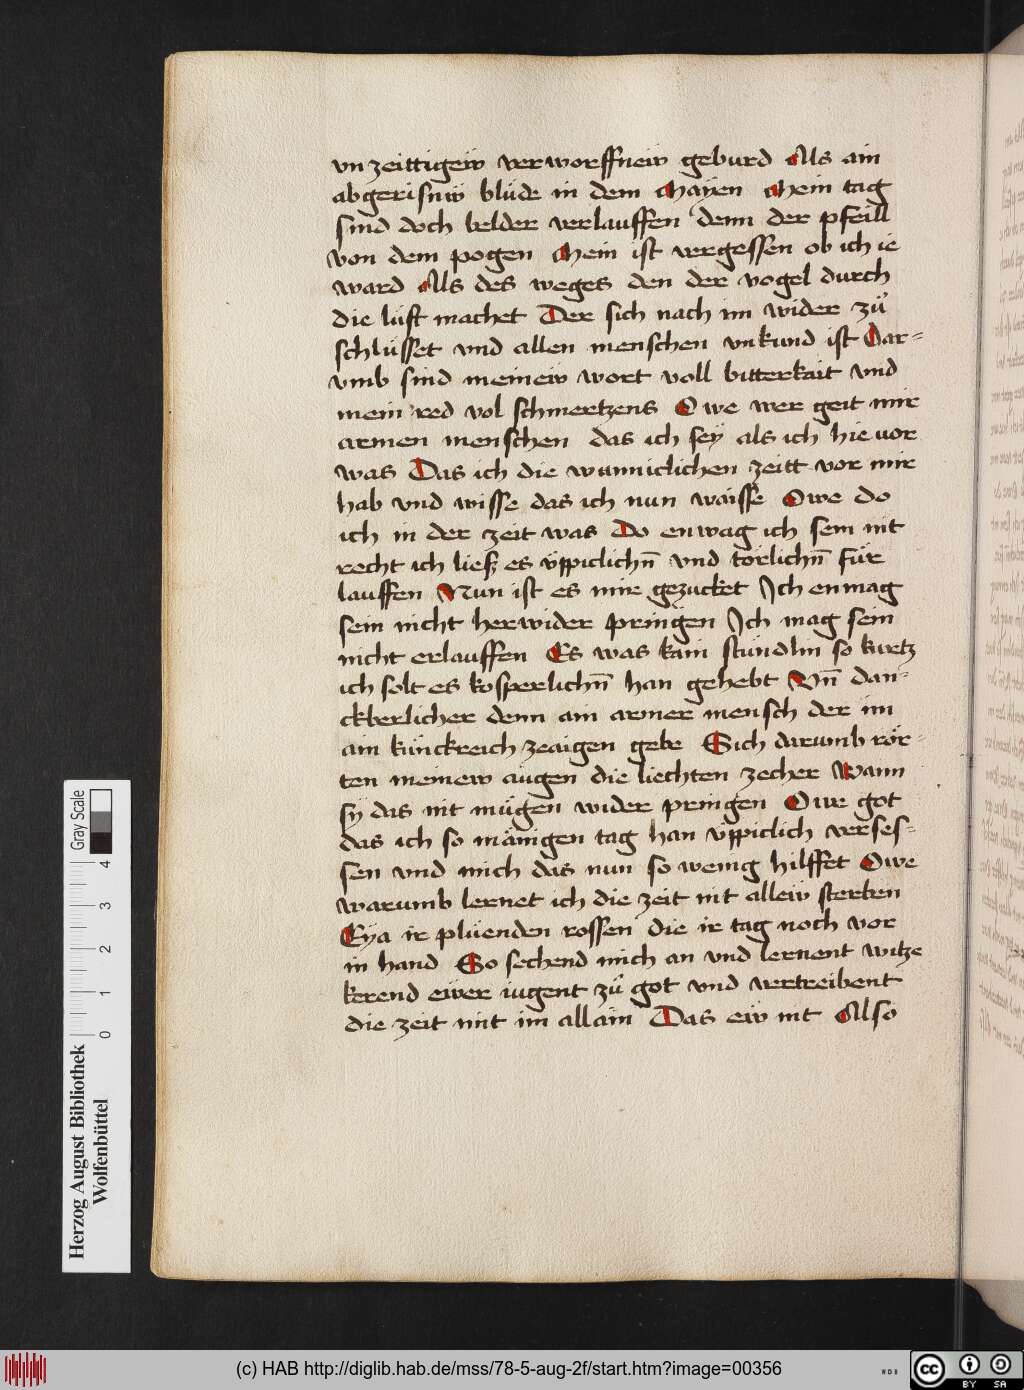 vnzeittigeẅ verworffneẅ geburd Als ain
abgerisnẅ blüde in dem Mayen Mein tag
sind doch belder verlauffen denn der pfeill
von dem pogen Mein ist vergessen ob ich ie
ward Als des weges den der vogel durch
die lüft machet Der sich nach im wider zů
schlüsset vnd allen menschen vnkund ist Dar-
vmb sind meinew wort voll bitterkait vnd
mein red vol schmertzens Owe wer geit mir
armen menschen das ich seÿ als ich hie vor
was Das ich die wunniclichen zeitt vor mir
hab vnd wisse das ich nun waisse Owe do
ich in der zeit was Do enwag ich sem nit
recht ich ließ es v̈ppiclichn̄ vnd törlichn̄ für
lauffen Nun ist es mir gezucket Ich enmag
sem nicht herwider pringen Ich mag sein
nicht erlauffen Es was kain stündlin so kurtz
ich solt es kosperlichn̄ han gehebt Vn̄ dan-
ckberlicher denn ain armer mensch der im
ain künckreich zeaigen gebe Sich darumb rör-
ten meinew augen die liechten zecher Wann
sy das nit mügen wider pringen Owe got
das ich so mänigen tag han v̈ppiclich verses-
sen vnd mich das nun so wenig hilffet Owe
warumb lernet ich die zeit nit alleẅ sterben
Eÿa ir plüenden rossen die ir tag noch vor
in hand So sechend mich an vnd lernent witze
kerend eẅer iugent zů got vnd vertreibent
die zeit mit im allain Das eẅ nit Also
Gray Scale
0 1 2 3 4
Herzog August Bibliothek
Wolfenbüttel
(c) HAB http://diglib.hab.de/mss/78-5-aug-2f/start.htm?image=00356
WDB
cc BY SA